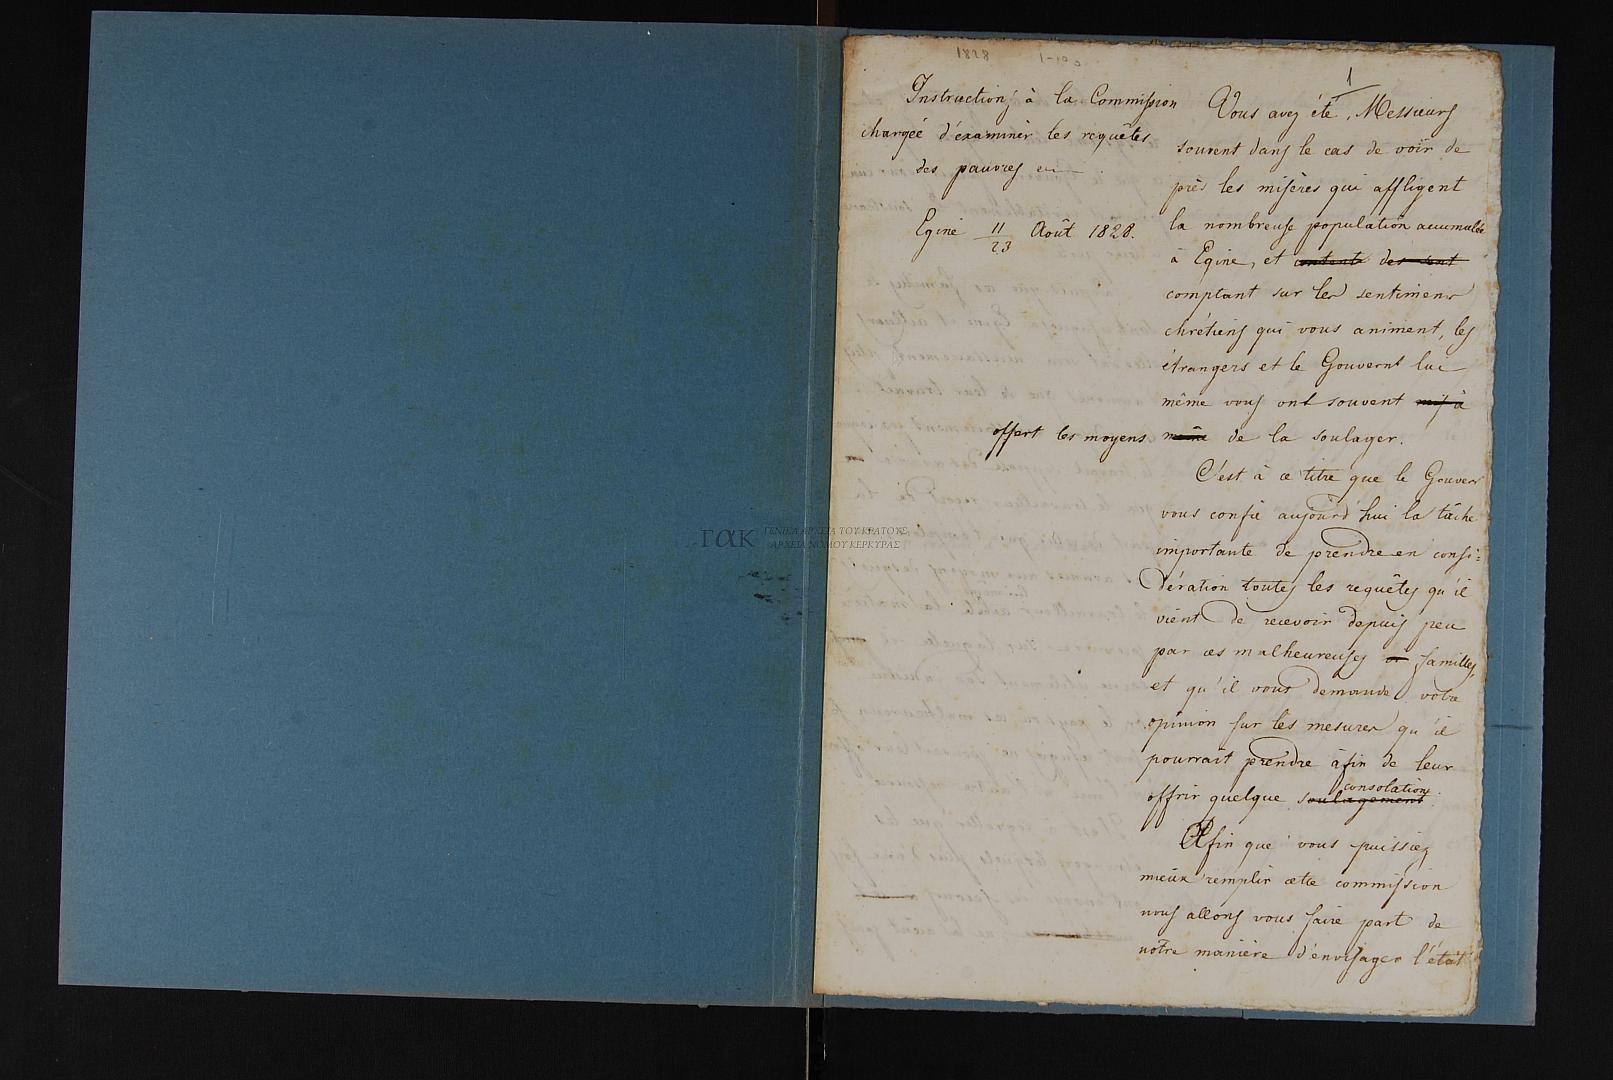 1828 1-100
1
Instructions à la Commission
chargée d'examiner les requêtes
des pauvres en
Egine 11/23 Août 1828.
Vous avez été, Messieurs
souvent dans le cas de voir de
près les misères qui affligent
la nombreuse population accumulée
à Egine, et des sont
comptant sur les sentimens
chrétiens qui vous animent, les
étrangers et le Gouvernt lui
même vous ont souvent mis à
offert les moyens même de la soulager.
C'est à ce titre que le Gouver
vous confie aujourd'hui la tâche
importante de prendre en consi=
dération toutes les requêtes qu'il
vient de recevoir depuis peu
par ces malheureuses familles,
et qu'il vous demande votre
opinion sur les mesures qu'il
pourrait prendre afin de leur
consolation.
offrir quelque soulagement
Afin que vous puissiez
mieux remplir cette commission
nous allons vous faire part de
notre manière d'envisager l'état
ΓΑΚ ΓΕΝΙΚΑ ΑΡΧΕΙΑ ΤΟΥ ΚΡΑΤΟΥΣ
ΑΡΧΕΙΑ ΝΟΜΟΥ ΚΕΡΚΥΡΑΣ